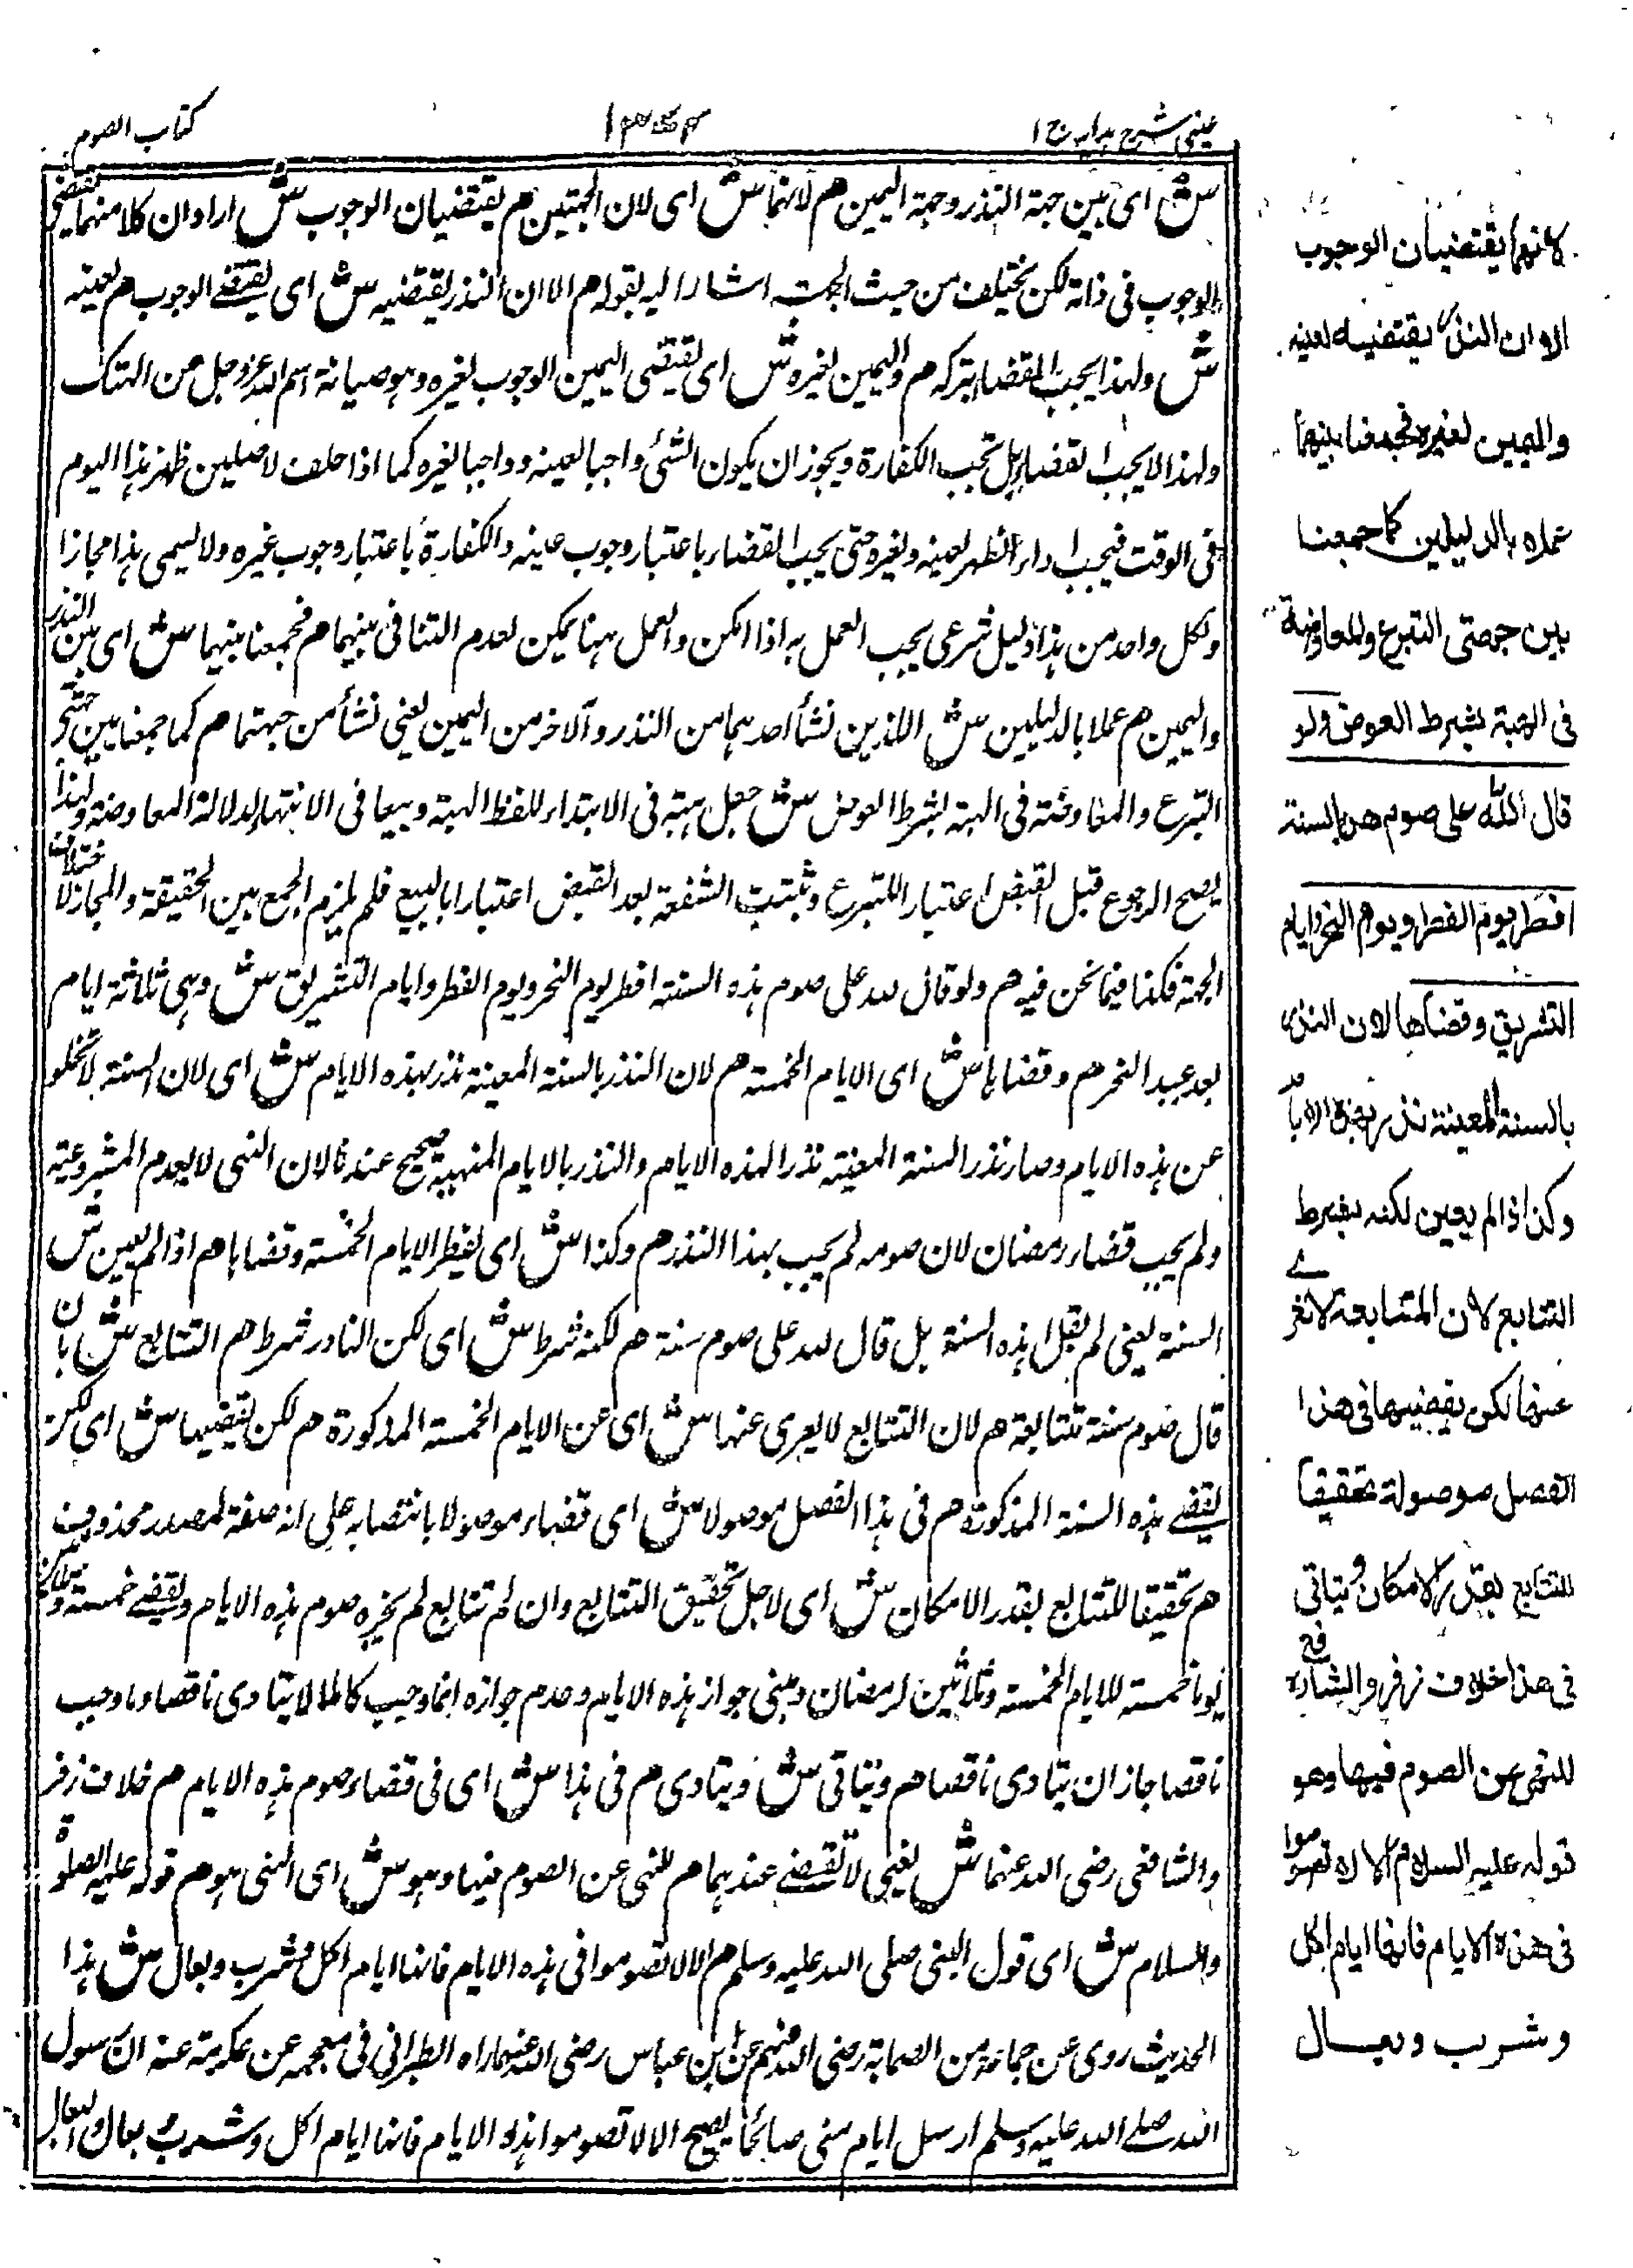 عینی شرح ہدایہ ج ۱
۱۳۵۴
کتاب الصوم
ش ای بین جهة النذر وجهة الیمین م لانهما ش ای لان الجهتین م یقتضیان الوجوب ش اراد ان کلا منهما یقتضی
الوجوب فی ذاته لکن یختلف من حیث الجهة اشار الیه بقوله م الا ان النذر یقتضیه ش ای یقتضی الوجوب م لعینه
ش ولهذا یجب القضاء بترکه م والیمین لغیره ش ای یقتضی الیمین الوجوب لغیره وهو صیانة اسم الله عز وجل من الهتک
ولهذا لا یجب القضاء بل تجب الکفارة ویجوز ان یکون الشئ واجبا لعینه وواجبا لغیره کما اذا حلف لاصلین ظهر هذا الیوم
فی الوقت فیجب اداء الظهر لعینه ولغیره حتی یجب القضاء باعتبار وجوب عینه والکفارة باعتبار وجوب غیره ولا یسمی هذا مجازا
ولکل واحد من هذا دلیل شرعی یجب العمل به اذا امکن والعمل ههنا یمکن لعدم التنافی بینهما م فجمعنا بینهما ش ای بین النذر
والیمین م عملا بالدلیلین ش اللذین نشأ احدهما من النذر والآخر من الیمین یعنی نشأ من جهتهما م کما جمعنا بین جهتی
التبرع والمعاوضة فی الهبة بشرط العوض ش جعل هبة فی الابتداء للفظ الهبة وبیعا فی الانتهاء لدلالة المعاوضة ولهذا
یصح الرجوع قبل القبض اعتبارا للتبرع وثبتت الشفعة بعد القبض اعتبارا بالبیع فلم یلزم الجمع بین الحقیقة والمجاز لاختلاف
الجهة فکذا فیما نحن فیه م ولو قال لله علی صوم هذه السنة افطر یوم النحر ویوم الفطر وایام التشریق ش وهی ثلاثة ایام
بعد عید النحر م وقضاها ش ای الایام الخمسة م لان النذر بالسنة المعینة نذر بهذه الایام ش ای لان السنة لا تخلو
عن هذه الایام وصار نذر السنة المعینة نذرا لهذه الایام والنذر بالایام المنهیة صحیح عندنا لان النهی لا یعدم المشروعیة
ولم یجب قضاء رمضان لان صومه لم یجب بهذا النذر م وکذا ش ای یفطر الایام الخمسة وقضاها م اذا لم یعین ش
السنة یعنی لم یقل هذه السنة بل قال لله علی صوم سنة م لکنه شرط ش ای لکن النادر شرط م التتابع ش بان
قال صوم سنة متتابعة م لان التتابع لا یعری عنها ش ای عن الایام الخمسة المذکورة م لکن یقضیها ش ای لکن
یقضی هذه السنة المذکورة م فی هذا الفصل موصولا ش ای قضاء موصولا بانتصابه علی انه صفة لمصدر محذوف
م تحقیقا للتتابع بقدر الامکان ش ای لاجل تحقیق التتابع وان لم تتابع لم یجزه صوم هذه الایام ویقضی خمسة وثلاثین
یوما خمسة للایام الخمسة وثلاثین لرمضان ومبنی جواز هذه الایام وعدم جوازه انما وجب کاملا لا یتادی ناقصا وما وجب
ناقصا جاز ان یتادی ناقصا م ویتاتی ش ویتادی م فی هذا ش ای فی قضاء صوم هذه الایام م خلاف زفر
والشافعی رضی الله عنهما ش یعنی لا تقضی عندهما م للنهی عن الصوم فیها وهو ش ای النهی هو م قوله علیه الصلوة
والسلام ش ای قول النبی صلی الله علیه وسلم م الا لا تصوموا فی هذه الایام فانها ایام اکل وشرب وبعال ش هذا
الحدیث روی عن جماعة من الصحابة رضی الله عنهم عن ابن عباس رضی الله عنهما رواه الطبرانی فی معجمه عن عکرمة عنه ان رسول
الله صلی الله علیه وسلم ارسل ایام منی صائحا یصیح الا لا تصوموا هذه الایام فانها ایام اکل وشرب وبعال والبعال
لانهما یقتضیان الوجوب
الا ان النذر یقتضیه لعینه
والیمین لغیره فجمعنا بینهما
عملا بالدلیلین کما جمعنا
بین جهتی التبرع والمعاوضة
فی الهبة بشرط العوض ولو
قال لله علی صوم هذه السنة
افطر یوم الفطر ویوم النحر وایام
التشریق وقضاها لان النذر
بالسنة المعینة نذر بهذه الایام
وکذا اذا لم یعین لکنه بشرط
التتابع لان المتابعة لا تعری
عنها لکن یقضیها فی هذا
الفصل موصولة تحقیقا
للتتابع بقدر الامکان ویتاتی
فی هذا خلاف زفر والشافعی
للنهی عن الصوم فیها وهو
قوله علیه السلام الا لا تصوموا
فی هذه الایام فانها ایام اکل
وشرب وبعال